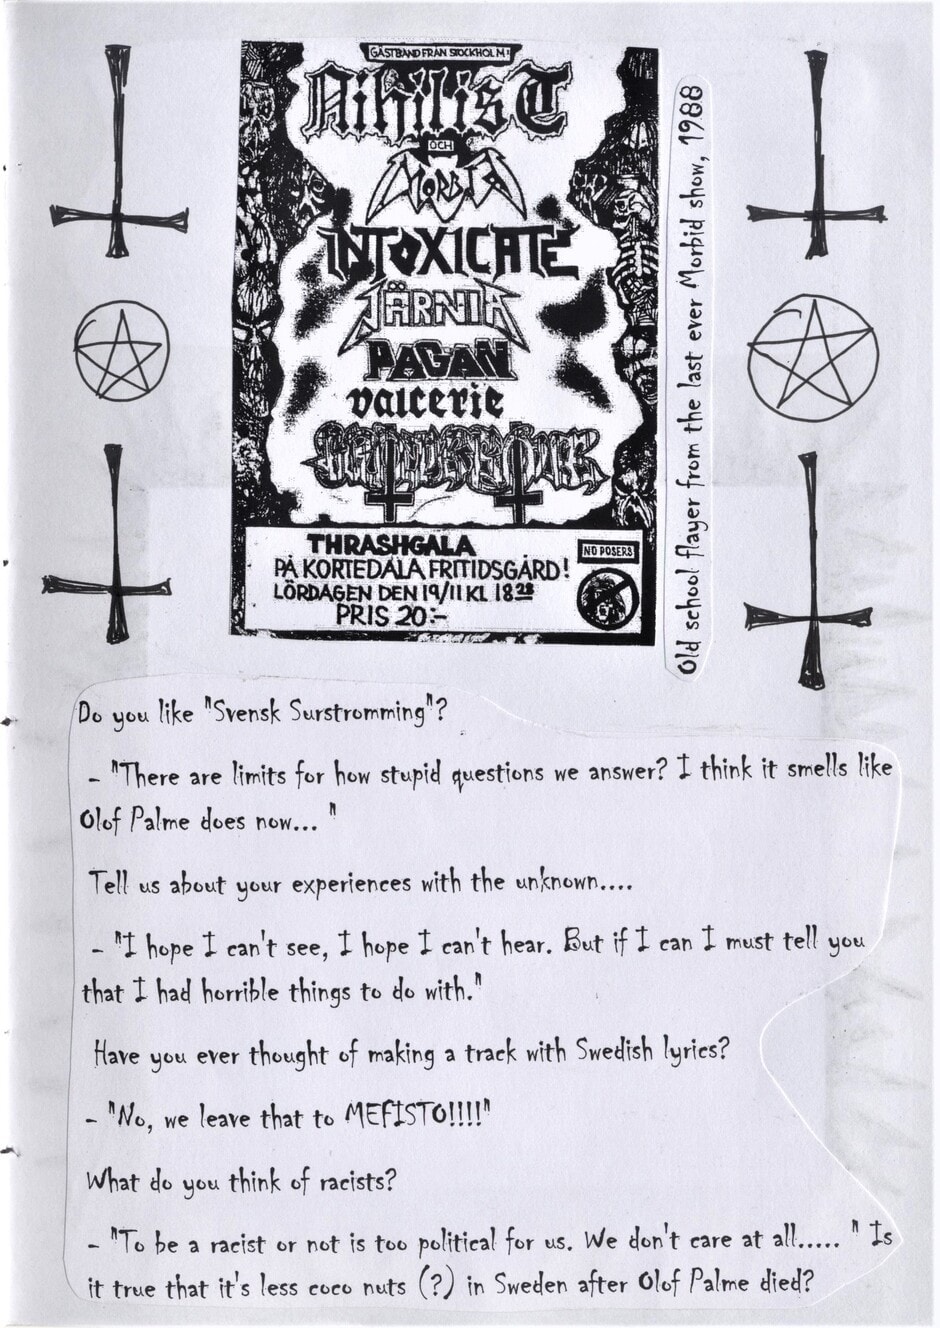 GÄSTBAND FRÅN STOCKHOLM!
NihilisT
OCH
MORBID
INTOXICATE
JÄRNIA
PAGAN
valcerie
THRASHGALA
PÅ KORTEDALA FRITIDSGÅRD!
LÖRDAGEN DEN 19/11 KL 18
PRIS 20:-
NO POSERS
Old school flayer from the last ever Morbid show, 1988
Do you like "Svensk Surstromming"?
- "There are limits for how stupid questions we answer? I think it smells like
Olof Palme does now... "
Tell us about your experiences with the unknown....
- "I hope I can't see, I hope I can't hear. But if I can I must tell you
that I had horrible things to do with."
Have you ever thought of making a track with Swedish lyrics?
- "No, we leave that to MEFISTO!!!!"
What do you think of racists?
- "To be a racist or not is too political for us. We don't care at all..... " Is
it true that it's less coco nuts (?) in Sweden after Olof Palme died?